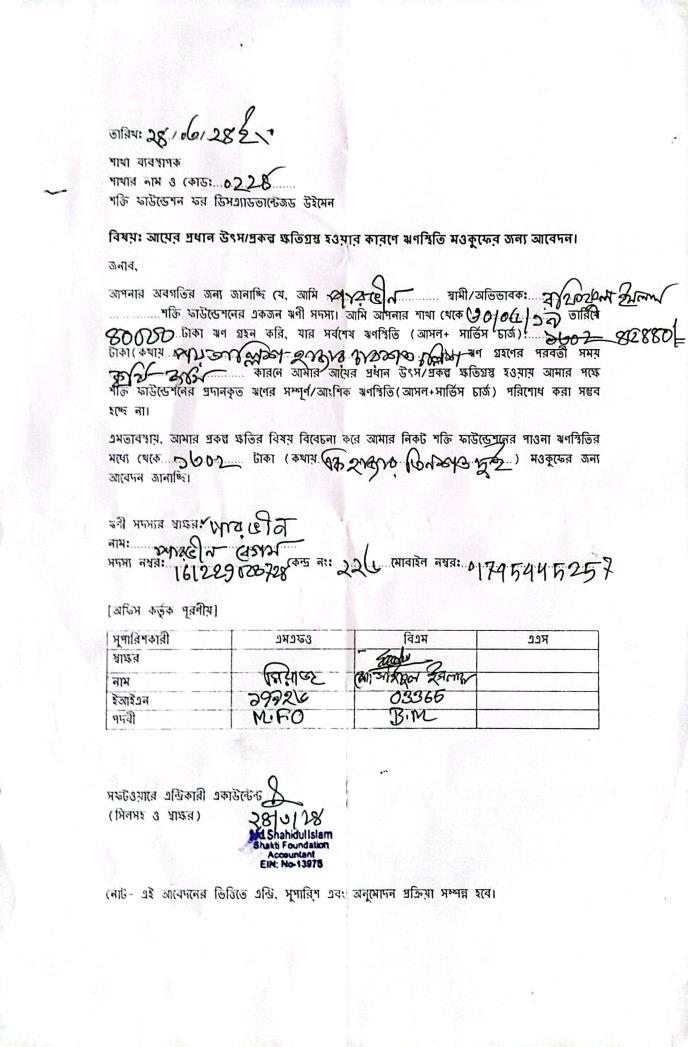 তারিখঃ ২৪/০৩/২৪ইং
শাখা ব্যবস্থাপক
শাখার নাম ও কোডঃ...০228.......
শক্তি ফাউন্ডেশন ফর ডিসএ্যাডভান্টেজড উইমেন
বিষয়ঃ আয়ের প্রধান উৎস/প্রকল্প ক্ষতিগ্রস্থ হওয়ার কারণে ঋণস্থিতি মওকুফের জন্য আবেদন।
জনাব,
আপনার অবগতির জন্য জানাচ্ছি যে, আমি পারভীন.......... স্বামী/অভিভাবক:.... রফিকুল ইসলাম
............শক্তি ফাউন্ডেশনের একজন ঋণী সদস্য। আমি আপনার শাখা থেকে তারিখে
40000 টাকা ঋণ গ্রহন করি, যার সর্বশেষ ঋণস্থিতি (আসল+ সার্ভিস চার্জ):
টাকা(কথায় হাজার ঋণ গ্রহণের পরবর্তী সময়
কারনে আমার আয়ের প্রধান উৎস/প্রকল্প ক্ষতিগ্রস্থ হওয়ায় আমার পক্ষে
শক্তি ফাউন্ডেশনের প্রদানকৃত ঋণের সম্পূর্ণ/আংশিক ঋণস্থিতি(আসল+সার্ভিস চার্জ) পরিশোধ করা সম্ভব
হচ্ছে না।
এমতাবস্থায়, আমার প্রকল্প ক্ষতির বিষয় বিবেচনা করে আমার নিকট শক্তি ফাউন্ডেশনের পাওনা ঋণস্থিতির
মধ্যে থেকে..১৩০২.... টাকা (কথায়.এক হাজার তিনশত দুই..) মওকুফের জন্য
আবেদন জানাচ্ছি।
ঋণী সদস্যর স্বাক্ষরঃ পারভীন
নাম:...... পারভীন বেগম
সদস্য নম্বরঃ কেন্দ্র নংঃ মোবাইল নম্বরঃ 01745445257
[অফিস কর্তৃক পূরণীয়]
সুপারিশকারী এমএফও বিএম এএস
স্বাক্ষর
নাম মোঃ সাইফুল ইসলাম
ইআইএন 03365
পদবী M.F.O B.M
সফটওয়ারে এন্ট্রিকারী একাউন্টেন্ট
(সিলসহ ও স্বাক্ষর) ২৪/৩/২৪
Md Shahidul Islam
Shakti Foundation
Accountant
EIN: No-13975
নোট- এই আবেদনের ভিত্তিতে এন্ট্রি, সুপারিশ এবং অনুমোদন প্রক্রিয়া সম্পন্ন হবে।